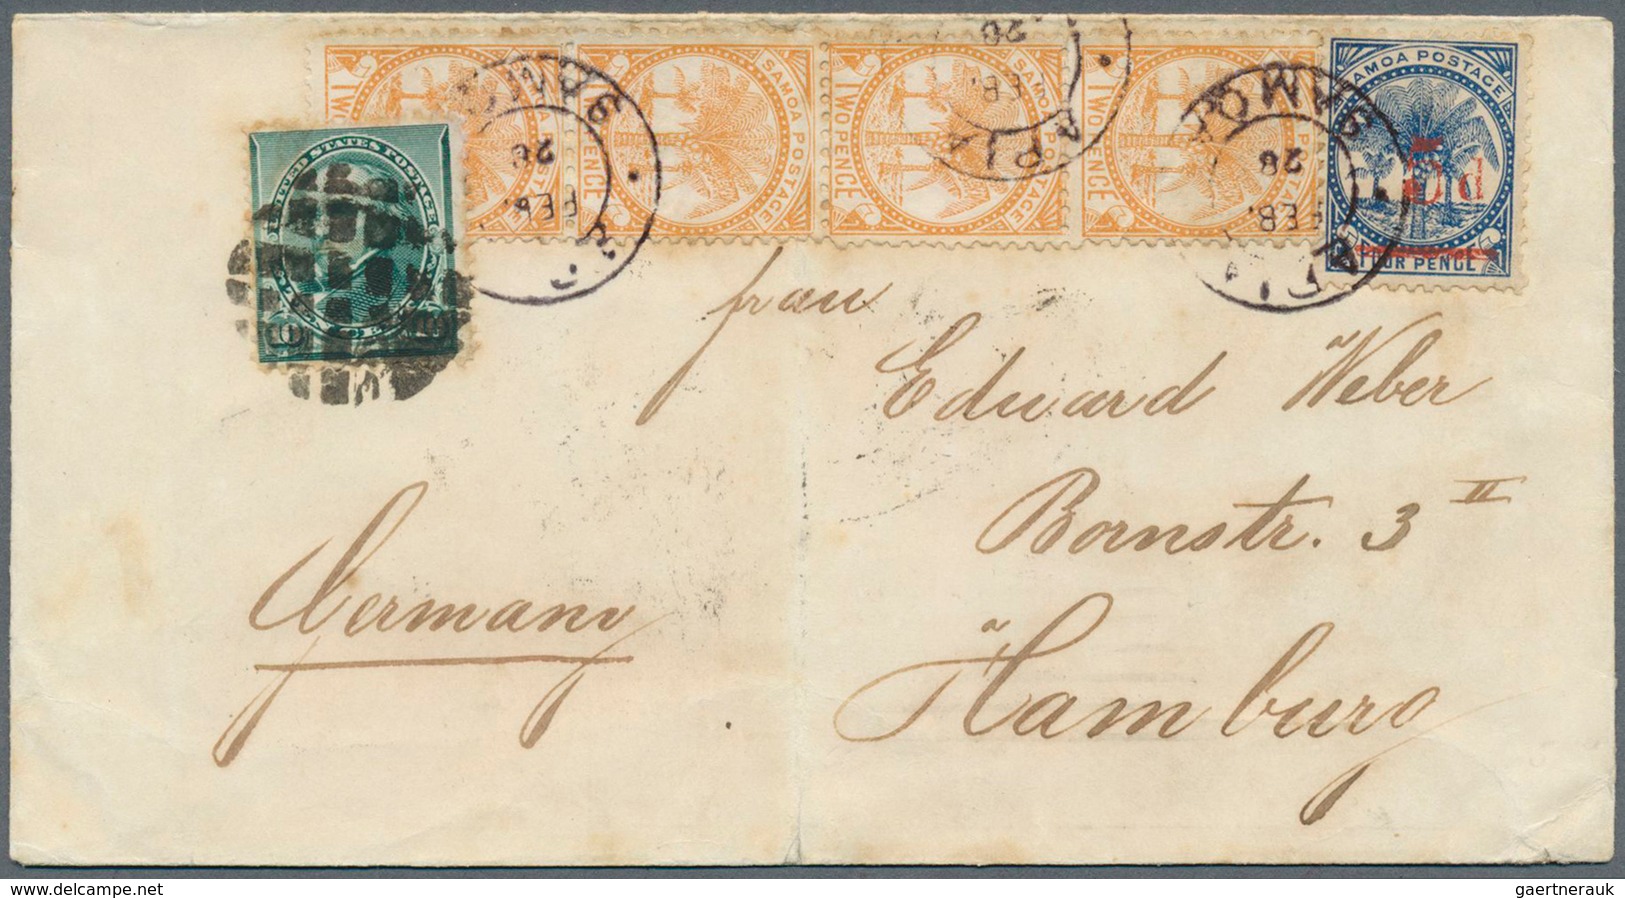 SAMOA POSTAGE
TWO PENCE
SAMOA POSTAGE
TWO PENCE
SAMOA POSTAGE
TWO PENCE
SAMOA POSTAGE
TWO PENCE
SAMOA POSTAGE
5d
FOUR PENCE
UNITED STATES POSTAGE
APIA
SAMOA
FEB.
20
APIA
FEB.
20
APIA
SAMOA
FEB.
20
frau
Eduard Weber
Bornstr. 3 II
Hamburg
Germany
delcampe.net
gaertnerauk